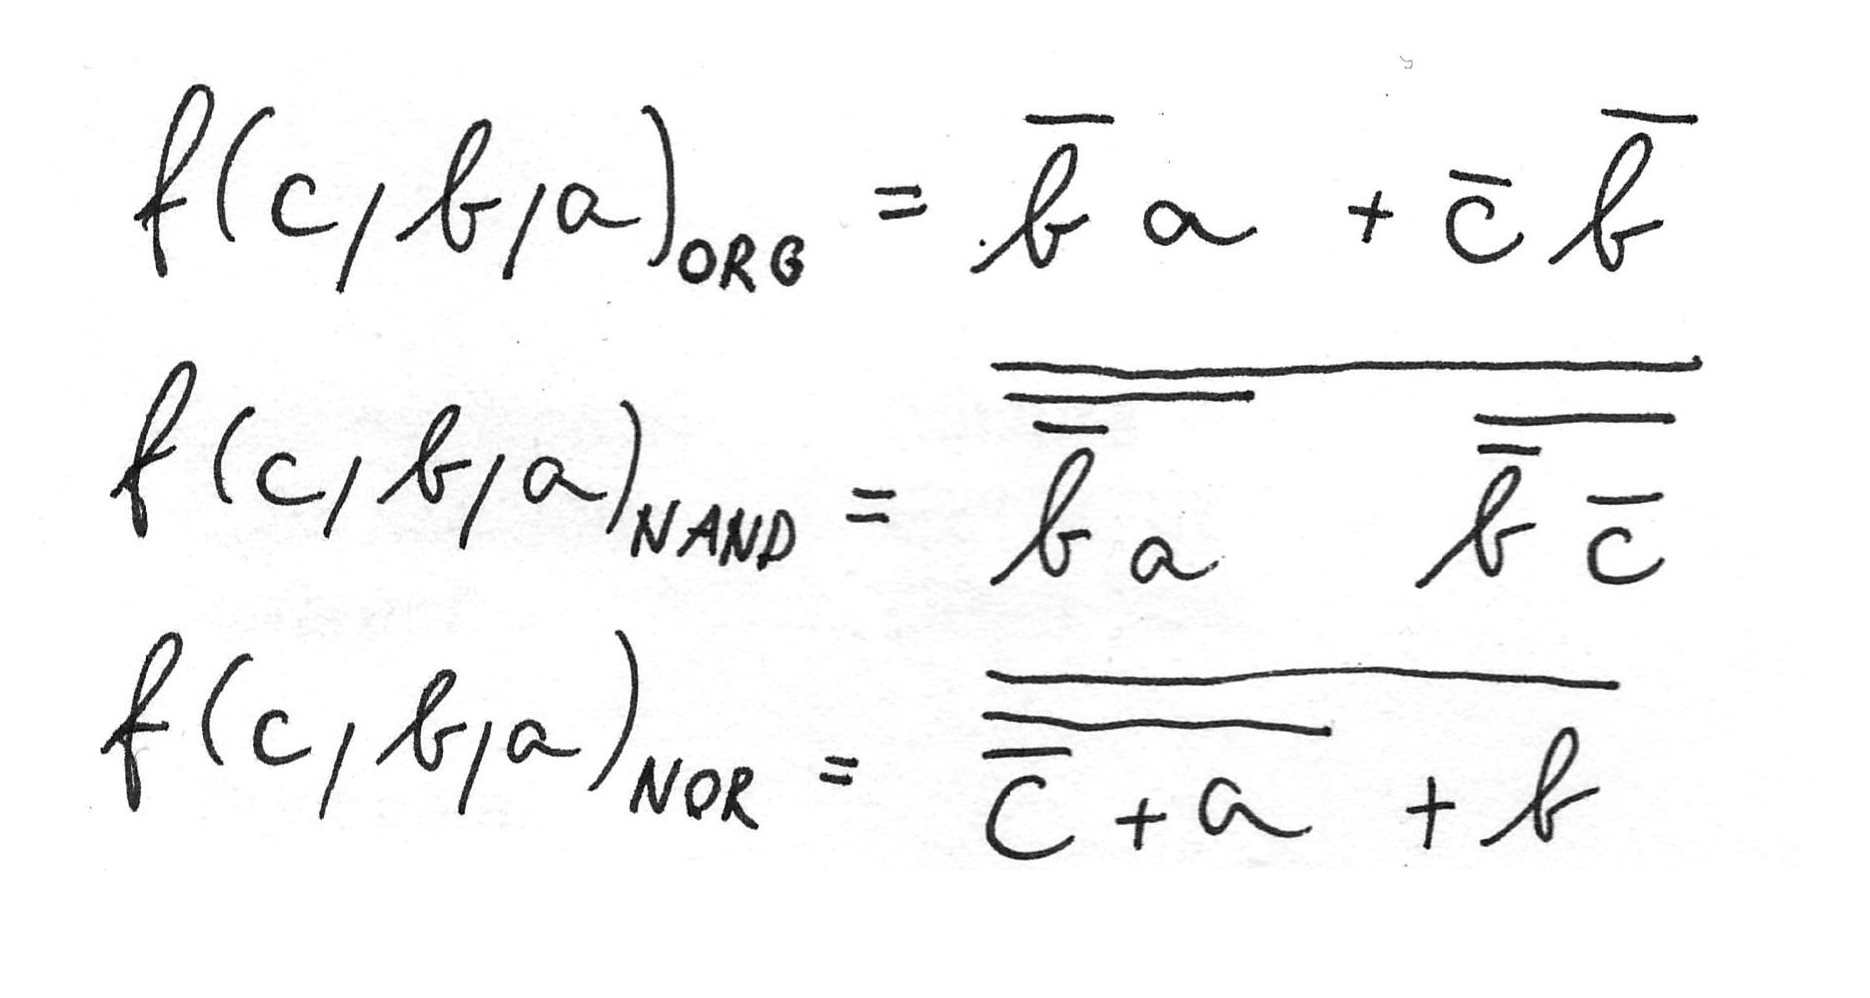 f(c,b,a)_ORG = b̅ a + c̅ b̅
f(c,b,a)_NAND = \overline{\overline{\overline{b} a} \overline{\overline{b} \overline{c}}}
f(c,b,a)_NOR = \overline{\overline{\overline{c} + a} + b}